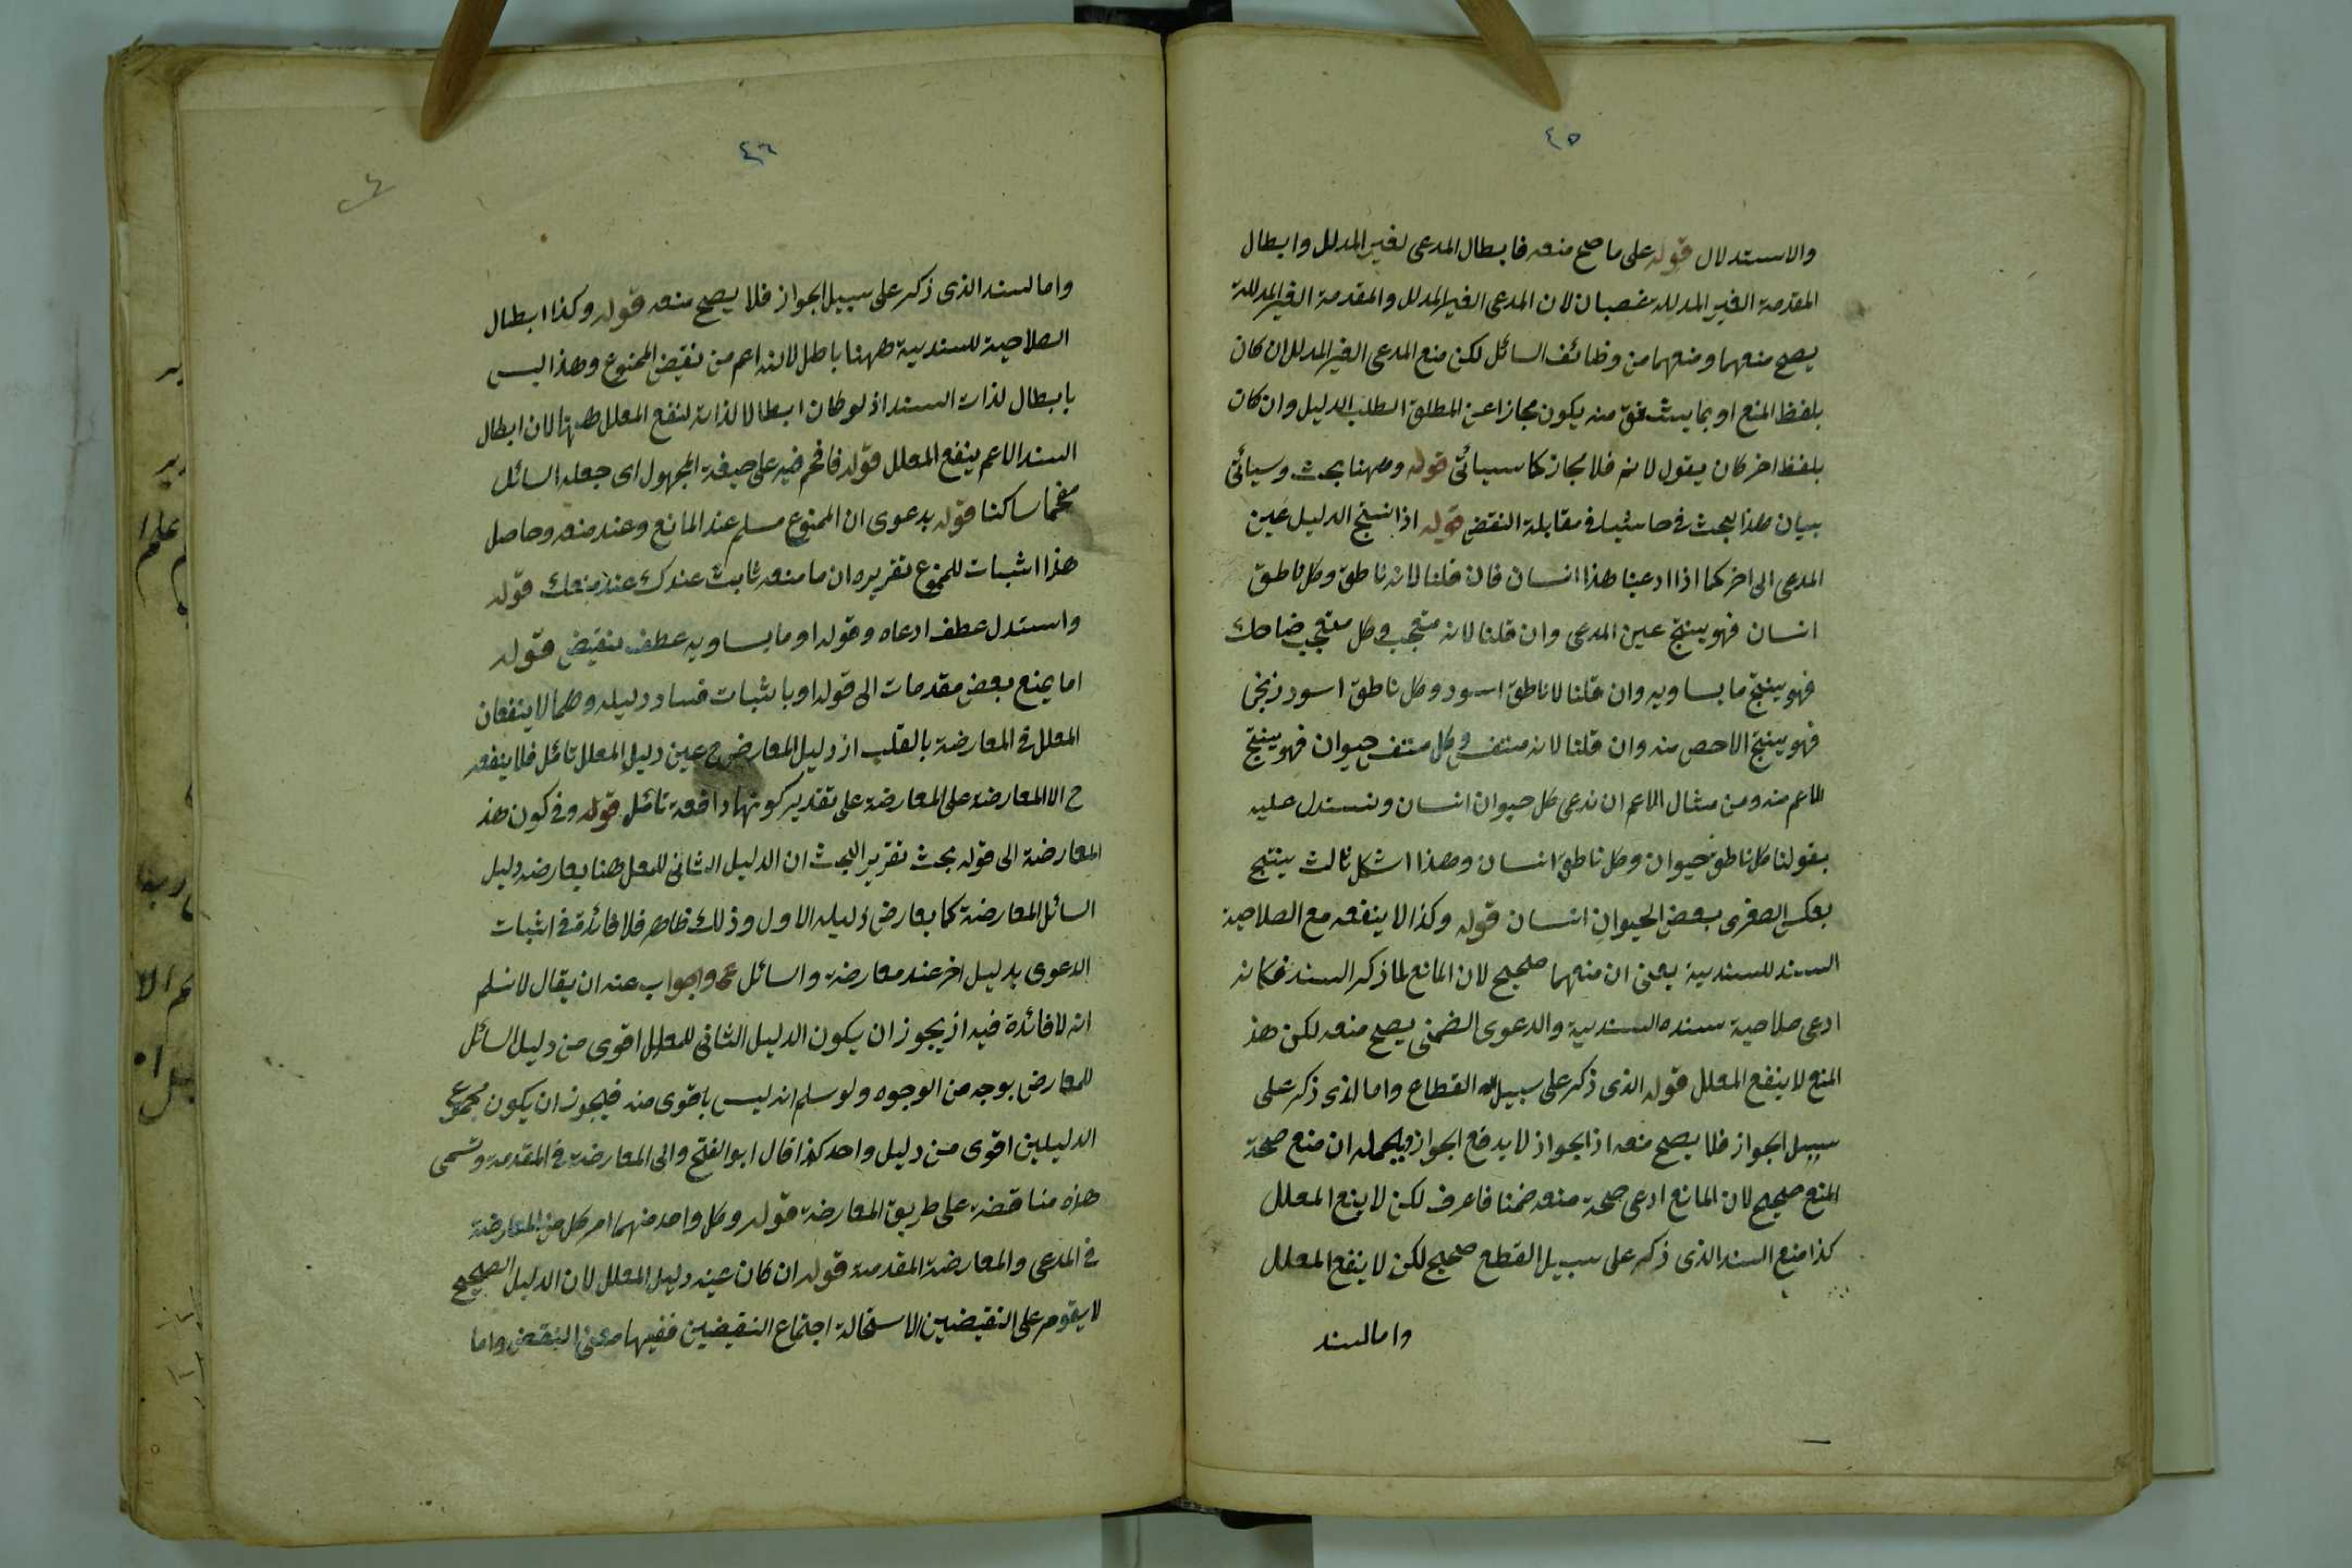 ٤٥
والاستدلال قوله على ما صح منعه فابطال المدعى الغير المدلل وابطال
المقدمة الغير المدللة غصبان لان المدعى الغير المدلل والمقدمة الغير المدللة
يصح منعهما ومنعهما من وظائف السائل لكن منع المدعى الغير المدلل ان كان
بلفظ المنع او بما يشتق منه يكون مجازا عن المطلق الطلب الدليل وان كان
بلفظ اخر كان يقول لانم فلا مجاز كما سيأتى قوله وههنا بحث وسيأتى
بيان هذا البحث فى حاشيا فى مقابلة النقض قوله اذا نتج الدليل عين
المدعى الى اخر كما اذا ادعينا هذا انسان فان قلنا لانه ناطق وكل ناطق
انسان فهو ينتج عين المدعى وان قلنا لانه متعجب وكل متعجب ضاحك
فهو ينتج ما يساويه وان قلنا لاناطق اسود وكل ناطق اسود زنجى
فهو ينتج الاحص منه وان قلنا لانه متنفس وكل متنفس حيوان فهو ينتج
الاعم منه ومن مثال الاعم ان ندعى كل حيوان انسان ونستدل عليه
بقولنا كل ناطق حيوان وكل ناطق انسان وهذا اشكل ثالث ينتج
بعكس الصغرى بعض الحيوان انسان قوله وكذا لا ينفعه مع الصلاحية
السند للسندية يعنى ان منعهما صحيح لان المانع لما ذكر السند فكانه
ادعى صلاحية سنده السندية والدعوى الضمنى يصح منعه لكن هذ
المنع لا ينفع المعلل قوله الذى ذكر على سبيل القطاع واما الذى ذكر على
سبيل الجواز فلا يصح منعه اذ الجواز لا يدفع الجواز ان منع صحة
المنع صحيح لان المانع ادعى صحة منعه ضمنا فاعرف لكن لا ينع المعلل
كذا منع السند الذى ذكر على سبيل القطع صحيح لكن لا ينفع المعلل
واما السند
٤٦
واما السند الذى ذكر على سبيل الجواز فلا يصح منعه قوله وكذا ابطال
الصلاحية للسندية ههنا باطل لانه اعم من نقيض الممنوع وهذا ليس
بابطال لذات السند اذ لو كان ابطالا لذاته لنفع المعلل ههنا لان ابطال
السند الاعم ينفع المعلل قوله فافحم فيه على صيغة المجهول اى جعله السائل
مفحما ساكتا قوله بدعوى ان الممنوع مسلم عند المانع وعند منعه وحاصل
هذا اثبات للممنوع تقريره ان ما منعه ثابت عندك عند منعك قوله
واستدل عطف ادعاه وقوله او ما يساويه عطف بنقيض قوله
اما بمنع بعض مقدمات الى قوله او باثبات فساد دليله وهما لا ينفعان
المعلل فى المعارضة بالقلب اذ دليل المعارض ح عين دليل المعلل تأمل فلا ينفعه
ح الا المعارضة على المعارضة على تقدير كونها دافعة تأمل قوله وفى كون هذ
المعارضة الى قوله بحث تقرير البحث ان الدليل الثانى للمعلل هنا يعارضه دليل
السائل المعارضة كما يعارض دليله الاول وذلك ظاهر فلا فائدة فى اثبات
الدعوى بدليل اخر عند معارضة والسائل والجواب عنه ان يقال لانسلم
انه لا فائدة فيه اذ يجوز ان يكون الدليل الثانى للمعلل اقوى من دليل السائل
للمعارض بوجه من الوجوه ولو سلم انه ليس باقوى منه فيجوز ان يكون مجموع
الدليلين اقوى من دليل واحد كذا قال ابو الفتح والى المعارضة فى المقدمة وتسمى
هذه مناقضة على طريق المعارضة قوله وكل واحد منهما امر كل من المعارضة
فى المدعى والمعارضة المقدمة قوله ان كان عينه دليل المعلل لان الدليل الصحيح
لا يقوم على النقيضين الا ستحالة اجتماع النقيضين ففيها معنى النقض واما